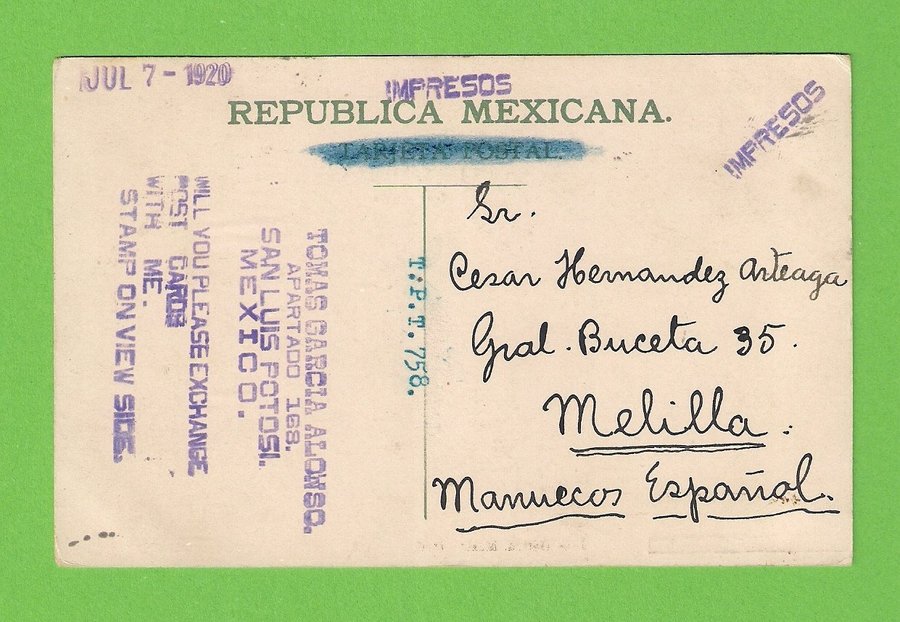 JUL 7 - 1920
IMPRESOS
IMPRESOS
REPUBLICA MEXICANA.
TARJETA POSTAL.
WILL YOU PLEASE EXCHANGE
POST CARDS
WITH ME.
STAMP ON VIEW SIDE.
TOMAS GARCIA ALONSO.
APARTADO 168.
SAN LUIS POTOSI.
MEXICO.
T.P.T. 758.
Sr.
Cesar Hernandez Arteaga
Gral. Buceta 35.
Melilla.
Manuecos Español.